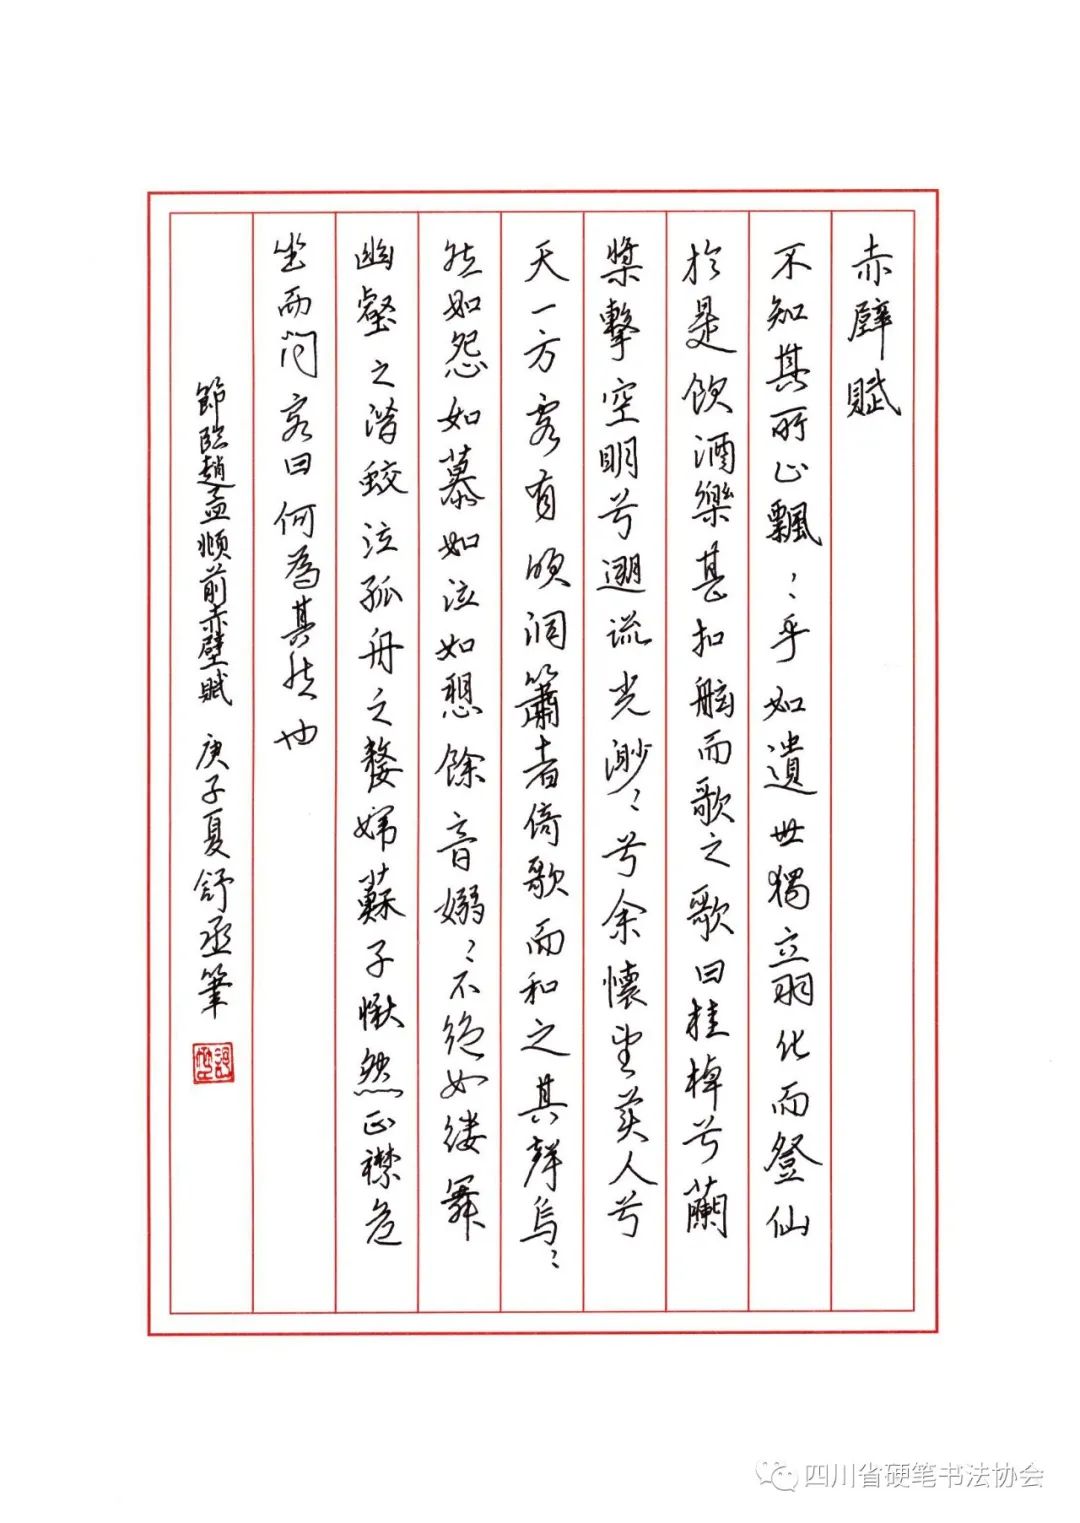 赤壁賦
不知其所止飄〻乎如遺世獨立羽化而登仙
於是飲酒樂甚扣舷而歌之歌曰桂棹兮蘭
槳擊空明兮遡流光渺〻兮余懷望美人兮
天一方客有吹洞簫者倚歌而和之其聲烏〻
然如怨如慕如泣如愬餘音嫋〻不絕如縷舞
幽壑之潛蛟泣孤舟之嫠婦蘇子愀然正襟危
坐而問客曰何為其然也
節臨趙孟頫前赤壁賦 庚子夏舒丞筆
四川省硬笔书法协会